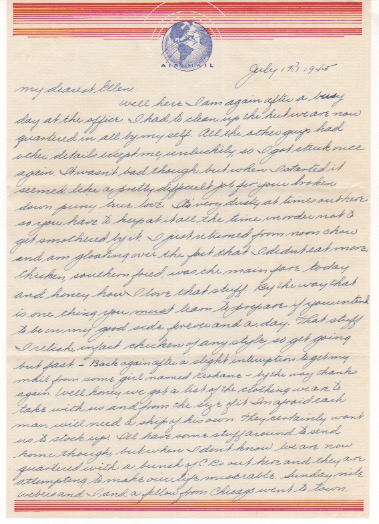 AIR MAIL
July 17, 1945
My dearest Ellen
Well here I am again after a busy
day at the office I had to clean up the hut we are now
quartered in all by my self. All the other guys had
other details except me, unluckily, so I got stuck once
again It wasn't bad though but when I started it
seemed like a pretty difficult job for your broken
down puny love Its very dusty at time out here
so you have to keep at it all the time in order not to
get smothered by it I just returned from noon chow
and am gloating over the fact that I did eat more
chicken, southern fried, was the main fare today
and honey how I love that stuff By the way that
is one thing you must learn to prepare if you intend
to be on my good side forever and a day. That stuff
I relish, in fact chicken of any style, so get going
but fast - Back again after a slight interruption to get my
mail from some girl named - by the way thanks
again. Well honey we got a list of the clothing we are to
take with us and from the size of it Im afraid each
man will need a ship of his own They certainly want
us to stock up I'll have some stuff around to send
home though but when I don't know we are now
quartered with a bunch of out here and they are
attempting to make our life miserable Sunday nite
and I and a fellow from Chicago went to town